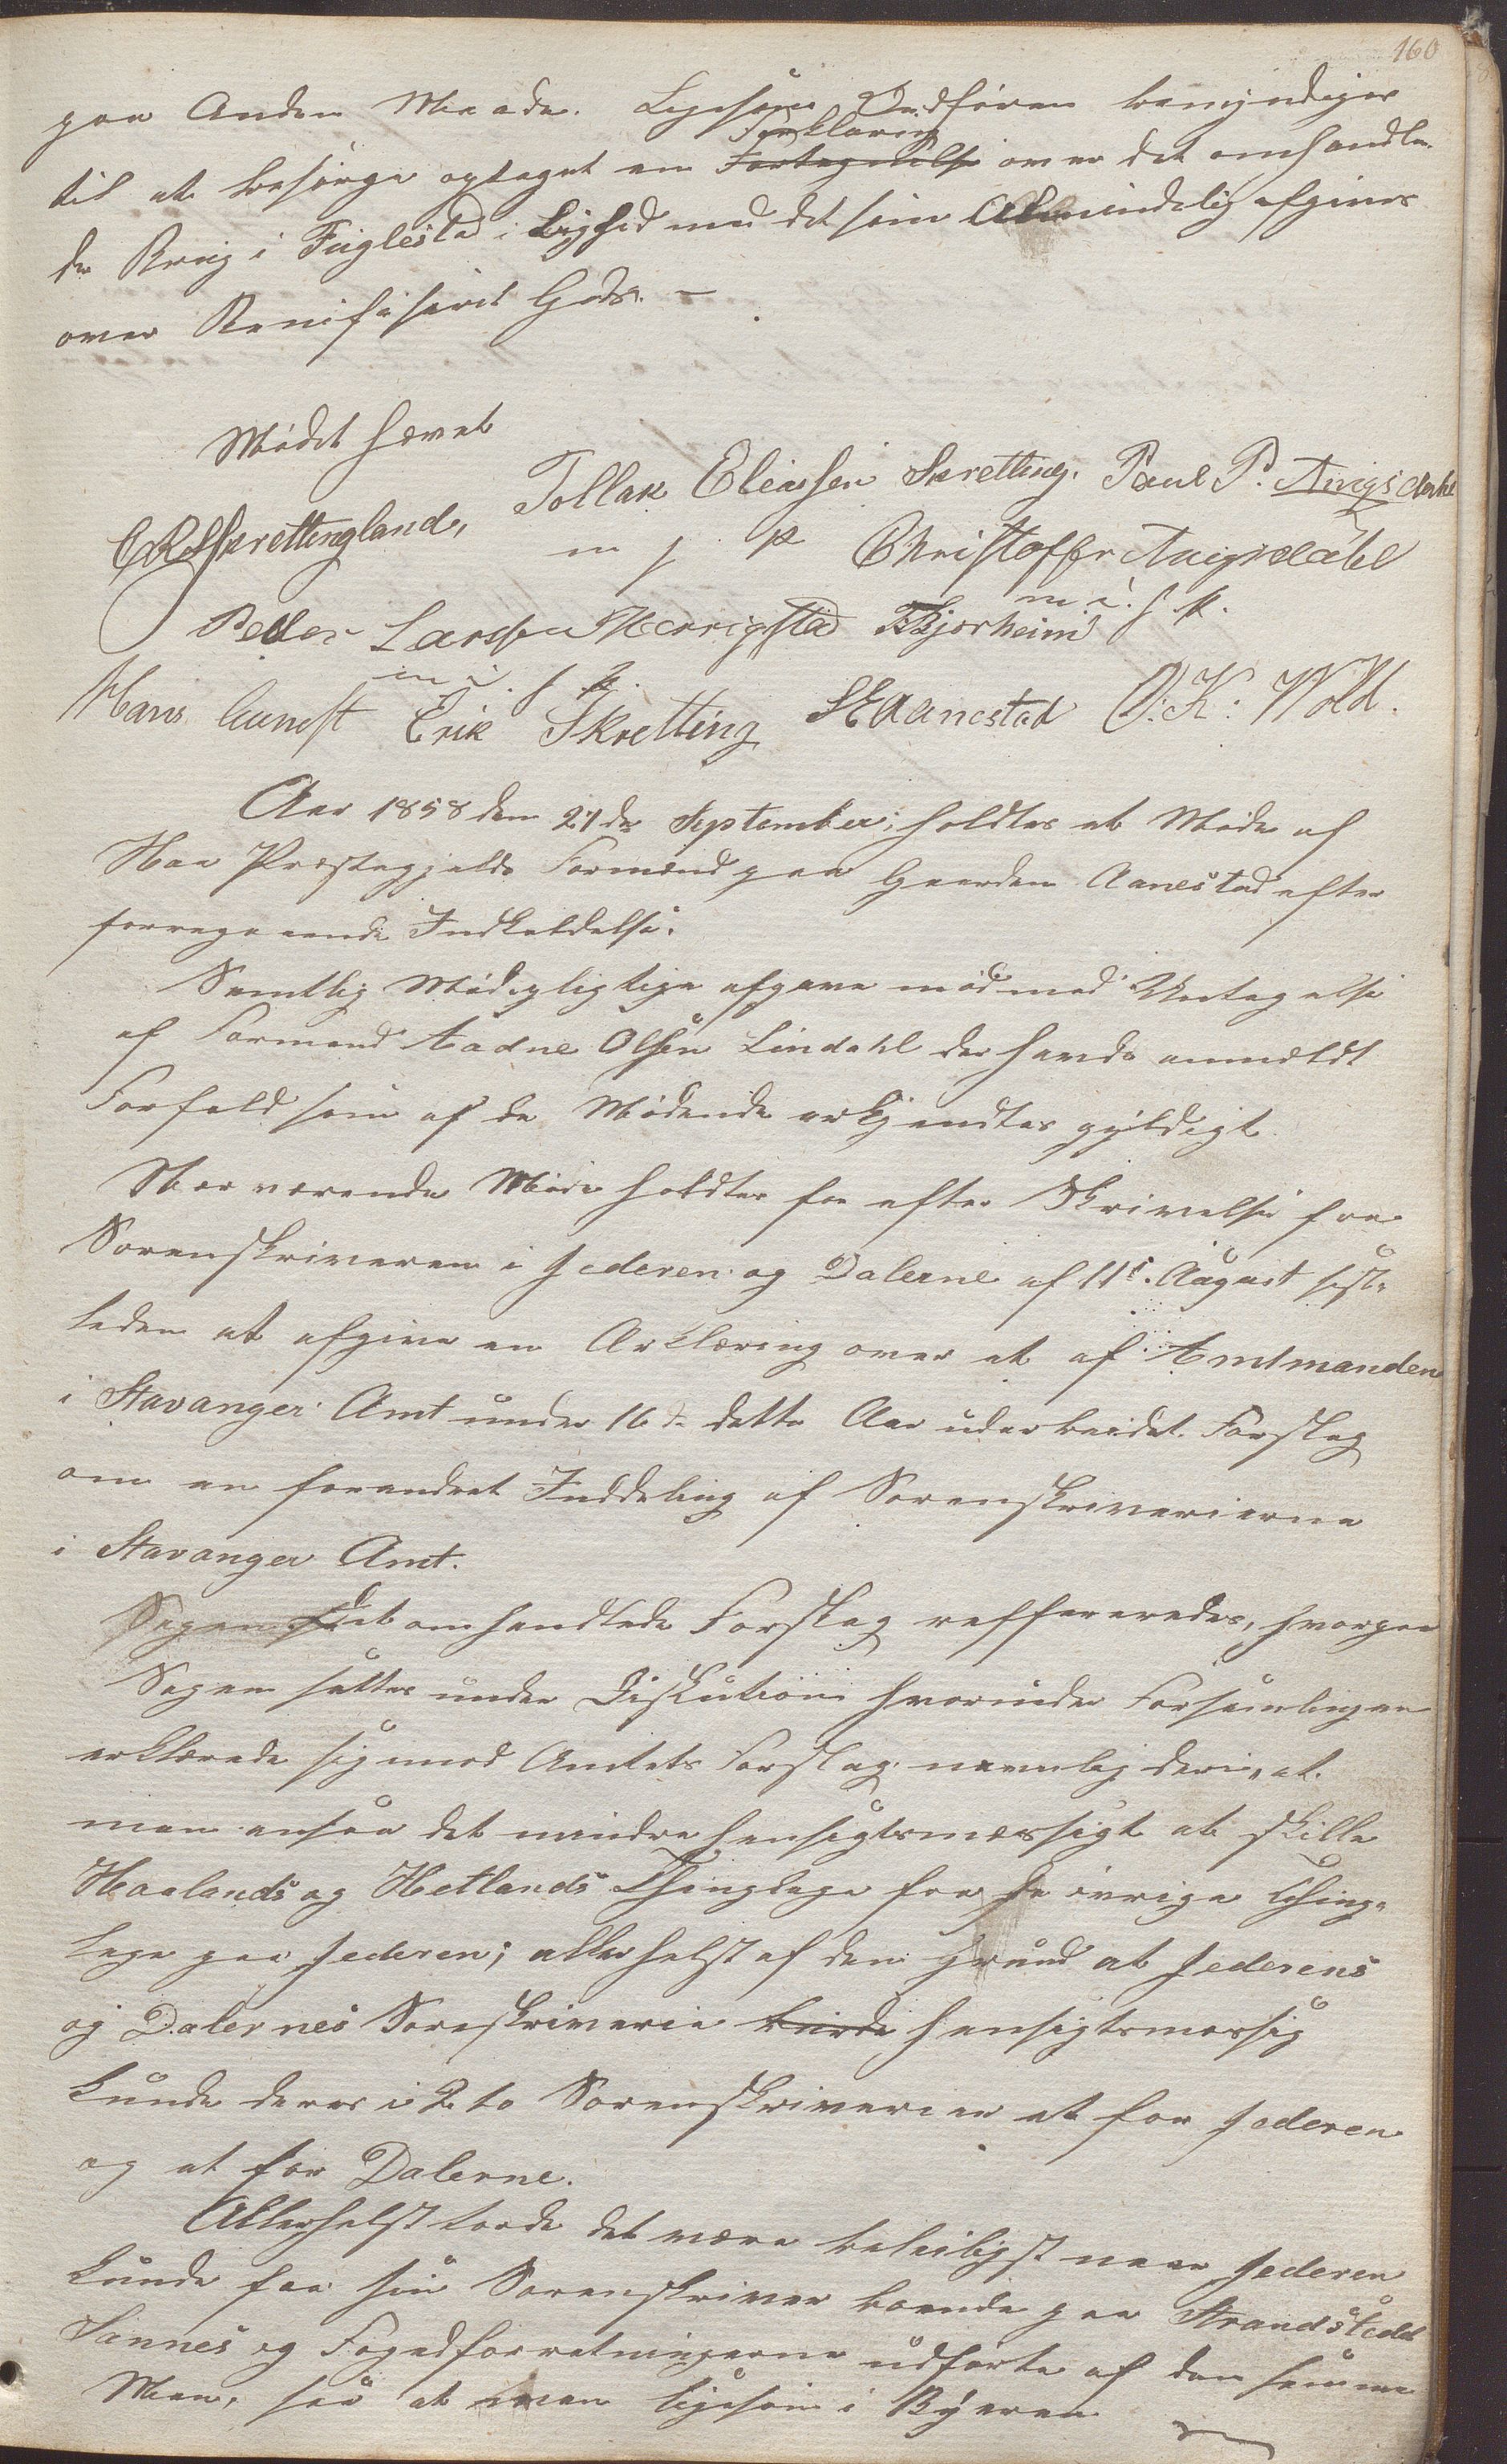 160
paa Anden Maade. Ligesom Ordføren bemyndiges
Forklaring
til at besørge optaget en Fortegnelse over det omhandle-
de Brug i Fuglestad i Lighed med det som Almindelig afgives
over Benifiseret Gods. –
Mødet hævet
Tollak Eliassen Skretting. Paul P. Auigsdahl
Skrettingland,
m f p Christoffer Auigsdahl
m. i. f p.
Peder Larssen Herrigstad Bjorheim
m i. f p.
Hans Aunest Erik Skretting Aanestad O: K: Wold.
Aar 1858 den 27de September, holdtes et Møde af
Haa Præstegjelds Formænd paa Gaarden Aanestad efter
forregaaende Indkaldelse.
Samtlig Mødepligtige afgave møde med Untagelse
af Formand Aadne Olsen Lindahl der havde anmældt
Forfald som af de Mødende erkjendtes gyldigt
Nærværende Møde holdtes for efter Skrivelse fra
Sorenskriveren i Jederen og Dalerne af 11te August sist-
leden at afgive en Erklæring over et af Amtmanden
i Stavanger Amt under 16de dette Aar udarbeidet Forslag
om en forandret Inddeling af Sorenskriverierne
i Stavanger Amt.
Sagen Det omhandlede Forslag reffereredes, hvorpaa
Sagen sattes under Diskution hvorunder Forsamlingen
erklærede sig mod Amtets Forslag navnlig deri, at
man ansaa det mindre hensigtsmæssigt at skille
Haalands og Hetlands Thinglage fra de øvrige Thing-
lage paa Jederen; allerhelst af den Grund at Jederens
og Dalernes Sorskriverie burde hensigtsmæssig
kunde deles i 2 to Sorenskriverier et for Jederen
og et for Dalerne.
Allerhelst torde det være beleiligst naar Jederen
kunde faa sin Sorenskriver boende paa Strandstedet
Sannes og Fogedforretningerne udførte af den samme
Man, saa at man ligesom i Byerne